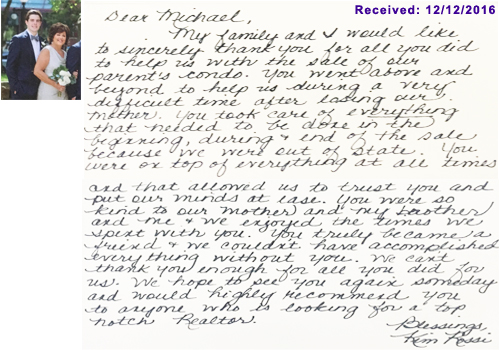 Received: 12/12/2016
Dear Michael,
My family and I would like
to sincerely thank you for all you did
to help us with the sale of our
parent's condo. You went above and
beyond to help us during a very
difficult time after losing our
mother. You took care of everything
that needed to be done in the
beginning, during & end of the sale
because we were out of state. You
were on top of everything at all times
and that allowed us to trust you and
put our minds at ease. You were so
kind to our mother and my brother
and me & we enjoyed the times we
spent with you. You truly became a
friend & we couldn't have accomplished
everything without you. We can't
thank you enough for all you did for
us. We hope to see you again someday
and would highly recommend you
to anyone who is looking for a top
notch Realtor.
Blessings,
Kim Rossi